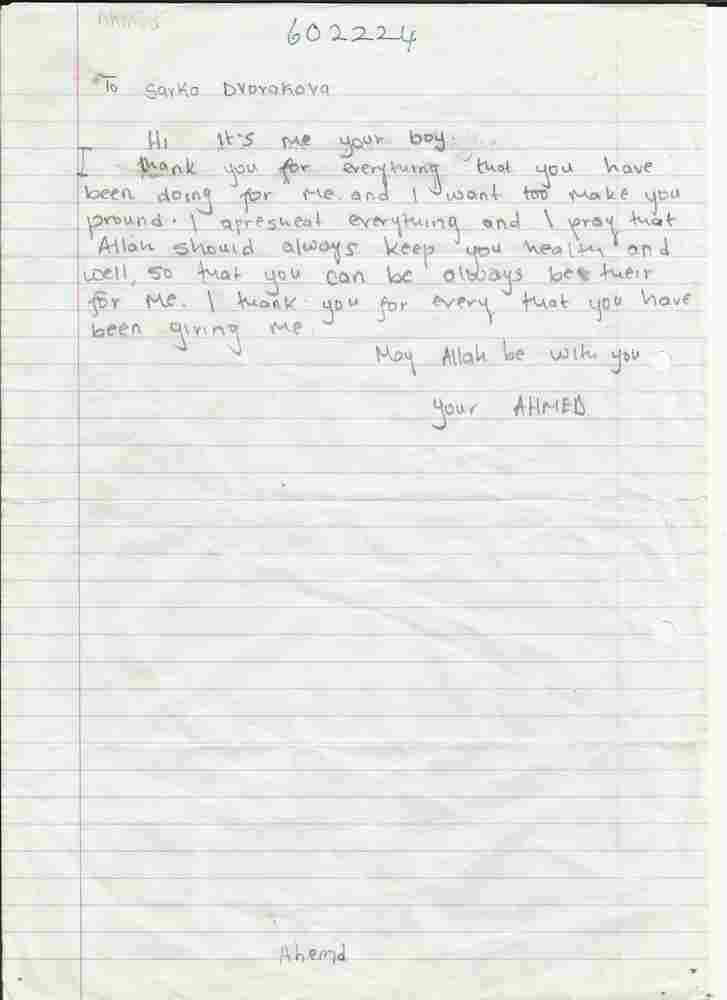 Ahmed
602224
To Sarka Dvorakova
Hi It's me your boy.
I thank you for everything that you have
been doing for me. and I want too make you
pround. I apresheat everything and I pray that
Allah should always keep you healty and
well, so that you can be always be their
for me. I thank you for every that you have
been giving me.
May Allah be with you
your AHMED
Ahemd